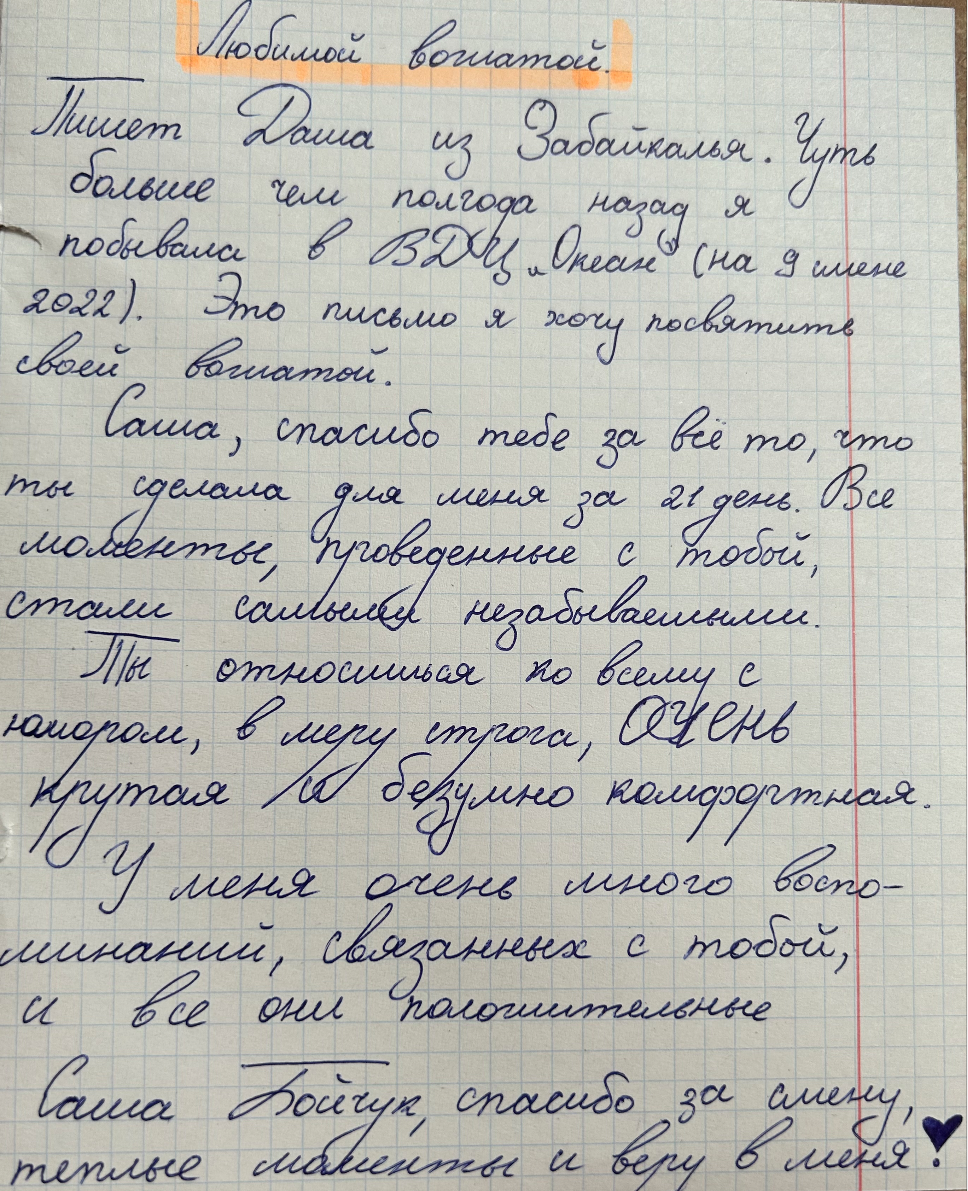 Любимой вожатой.
Пишет Даша из Забайкалья. Чуть
больше чем полгода назад я
побывала в ВДЦ „Океан“ (на 9 смене
2022). Это письмо я хочу посвятить
своей вожатой.
Саша, спасибо тебе за всё то, что
ты сделала для меня за 21 день. Все
моменты, проведенные с тобой,
стали самыми незабываемыми.
Ты относишься ко всему с
юмором, в меру строга, ОЧЕНЬ
крутая и безумно комфортная.
У меня очень много воспо-
минаний, связанных с тобой,
и все они положительные
Саша Бойчук, спасибо за смену,
теплые моменты и веру в меня!